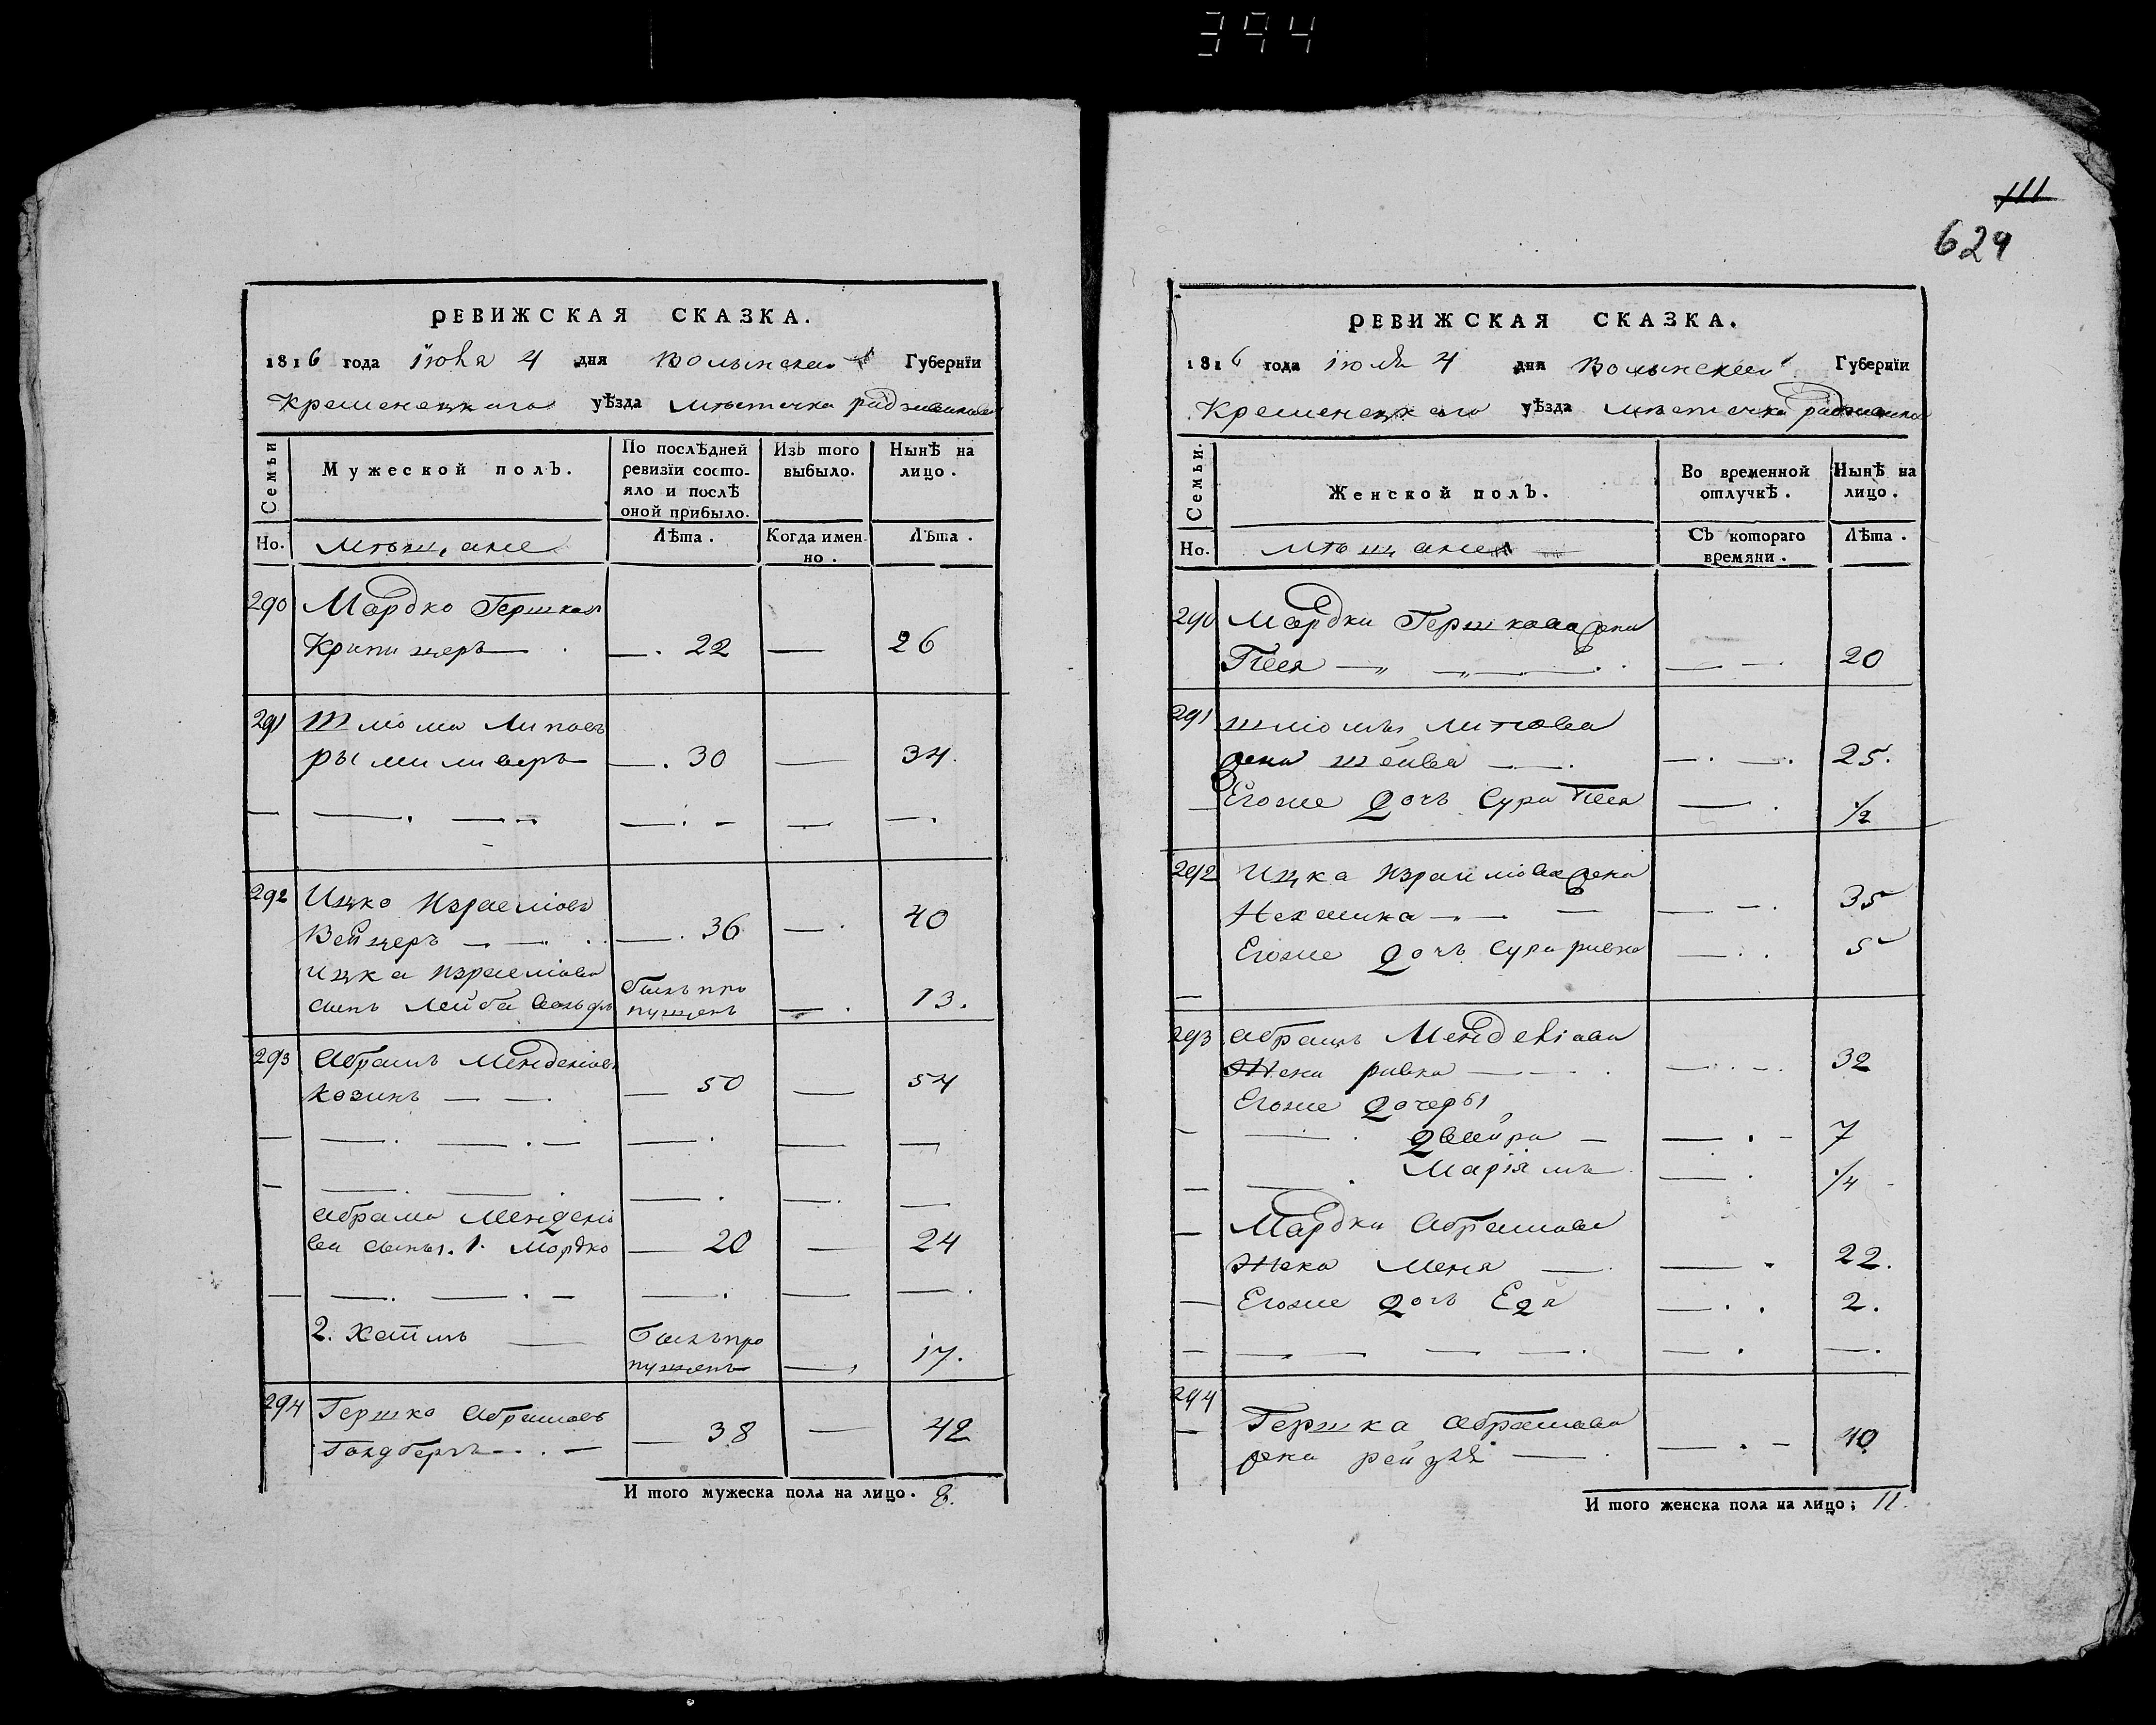 394
РЕВИЖСКАЯ СКАЗКА.
1816 года Їюля 4 дня Волынской Губернїи
Кременецкаго уѣзда мѣстечка радзивилова
Семьи
Мужеской полъ.
По послѣдней ревизїи состо-
яло и послѣ
оной прибыло.
Изъ того
выбыло.
Нынѣ на
лицо.
Но.
Мѣщане
Лѣта.
Когда имен-
но.
Лѣта.
290 Мордко Гершков
— . 22 — 26
291 Шліома Липовъ
— . 30 — 34.
292 Ицко Израеліовъ
Вейцеръ — . 36 — . 40
ицка израеліова
сынъ Лейба Вольфъ былъ про
пущенъ — . 13.
293 Абрамъ Менделіовъ
козикъ — — 50 — 54
Абрама Менделіо
ва сыны. 1. Мордко — 20 — 24
2. Хаимъ — былъ про
пущенъ — . 17.
294 Гершко Абрамовъ
Голдберъ — 38 — 42
И того мужеска пола на лицо. 8.
111
629
РЕВИЖСКАЯ СКАЗКА.
1816 года Їюля 4 дня Волынской Губернїи
Кременецкаго уѣзда мѣстечка радзивилова
Семьи.
Женской полъ.
Во временной
отлучкѣ.
Нынѣ на
лицо.
Но.
мѣщане
Съ котораго
времяни.
Лѣта.
290 Мордки Гершкова жена
Песя — 20
291 шліомы липова
жена шейва — 25.
Егоже дочь Сура Песя — . 1/2
292 Ицка израиліова жена
Нехамка — 35
Егоже дочь Сура ривка — 5
293 абрамъ Менделіова
Жена ривка — 32
Егоже дочеры
двейра — 7
Маріямъ — 1/4
Мордки Абрамова
Жена Меня — 22.
Егоже дочь Едя — 2.
294
Гершка Абрамова
жена рейзя — 40
И того женска пола на лицо; 11.